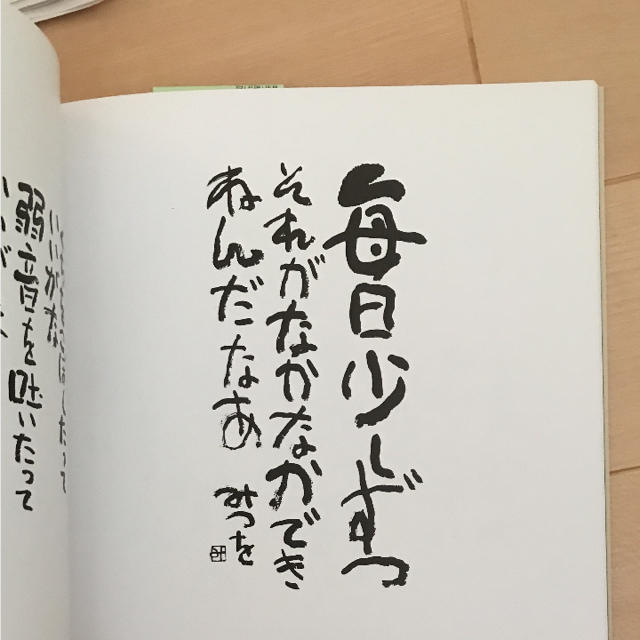 毎日少しずつ
それがなかなかでき
ねんだなあ
みつを
いいがな
弱音を吐いたって